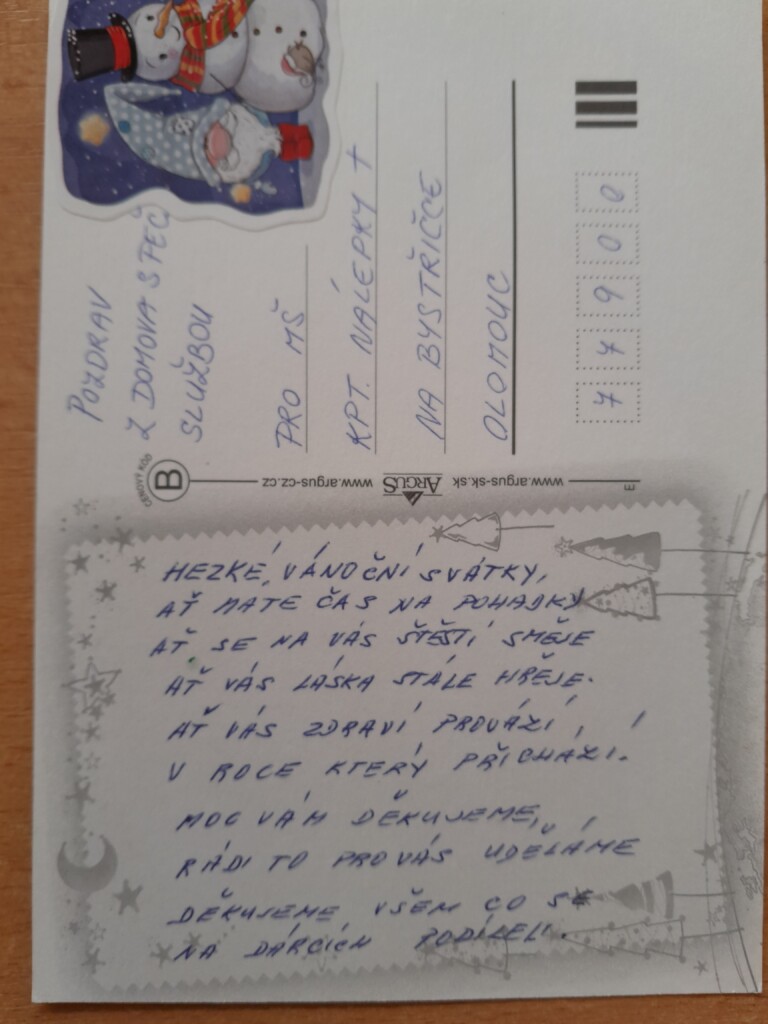 POZDRAV
Z DOMOVA S PEČ
SLUŽBOU
PRO MŠ
KPT. NÁLEPKY +
NA BYSTŘIČCE
OLOMOUC
7 7 9 0 0
CENOVÝ KÓD
B
www.argus-cz.cz
ARGUS
www.argus-sk.sk
HEZKÉ, VÁNOČNÍ SVÁTKY,
AŤ MATE ČAS NA POHADKY
AŤ SE NA VÁS ŠTĚSTÍ SMĚJE
AŤ VÁS LÁSKA STÁLE HŘEJE.
AŤ VÁS ZDRAVÍ PROVÁZÍ,
V ROCE KTERÝ PŘICHÁZÍ.
MOC VÁM DĚKUJEME,
RÁDI TO PRO VÁS UDĚLÁME
DĚKUJEME VŠEM CO SE
NA DÁRCÍCH PODÍLELI.